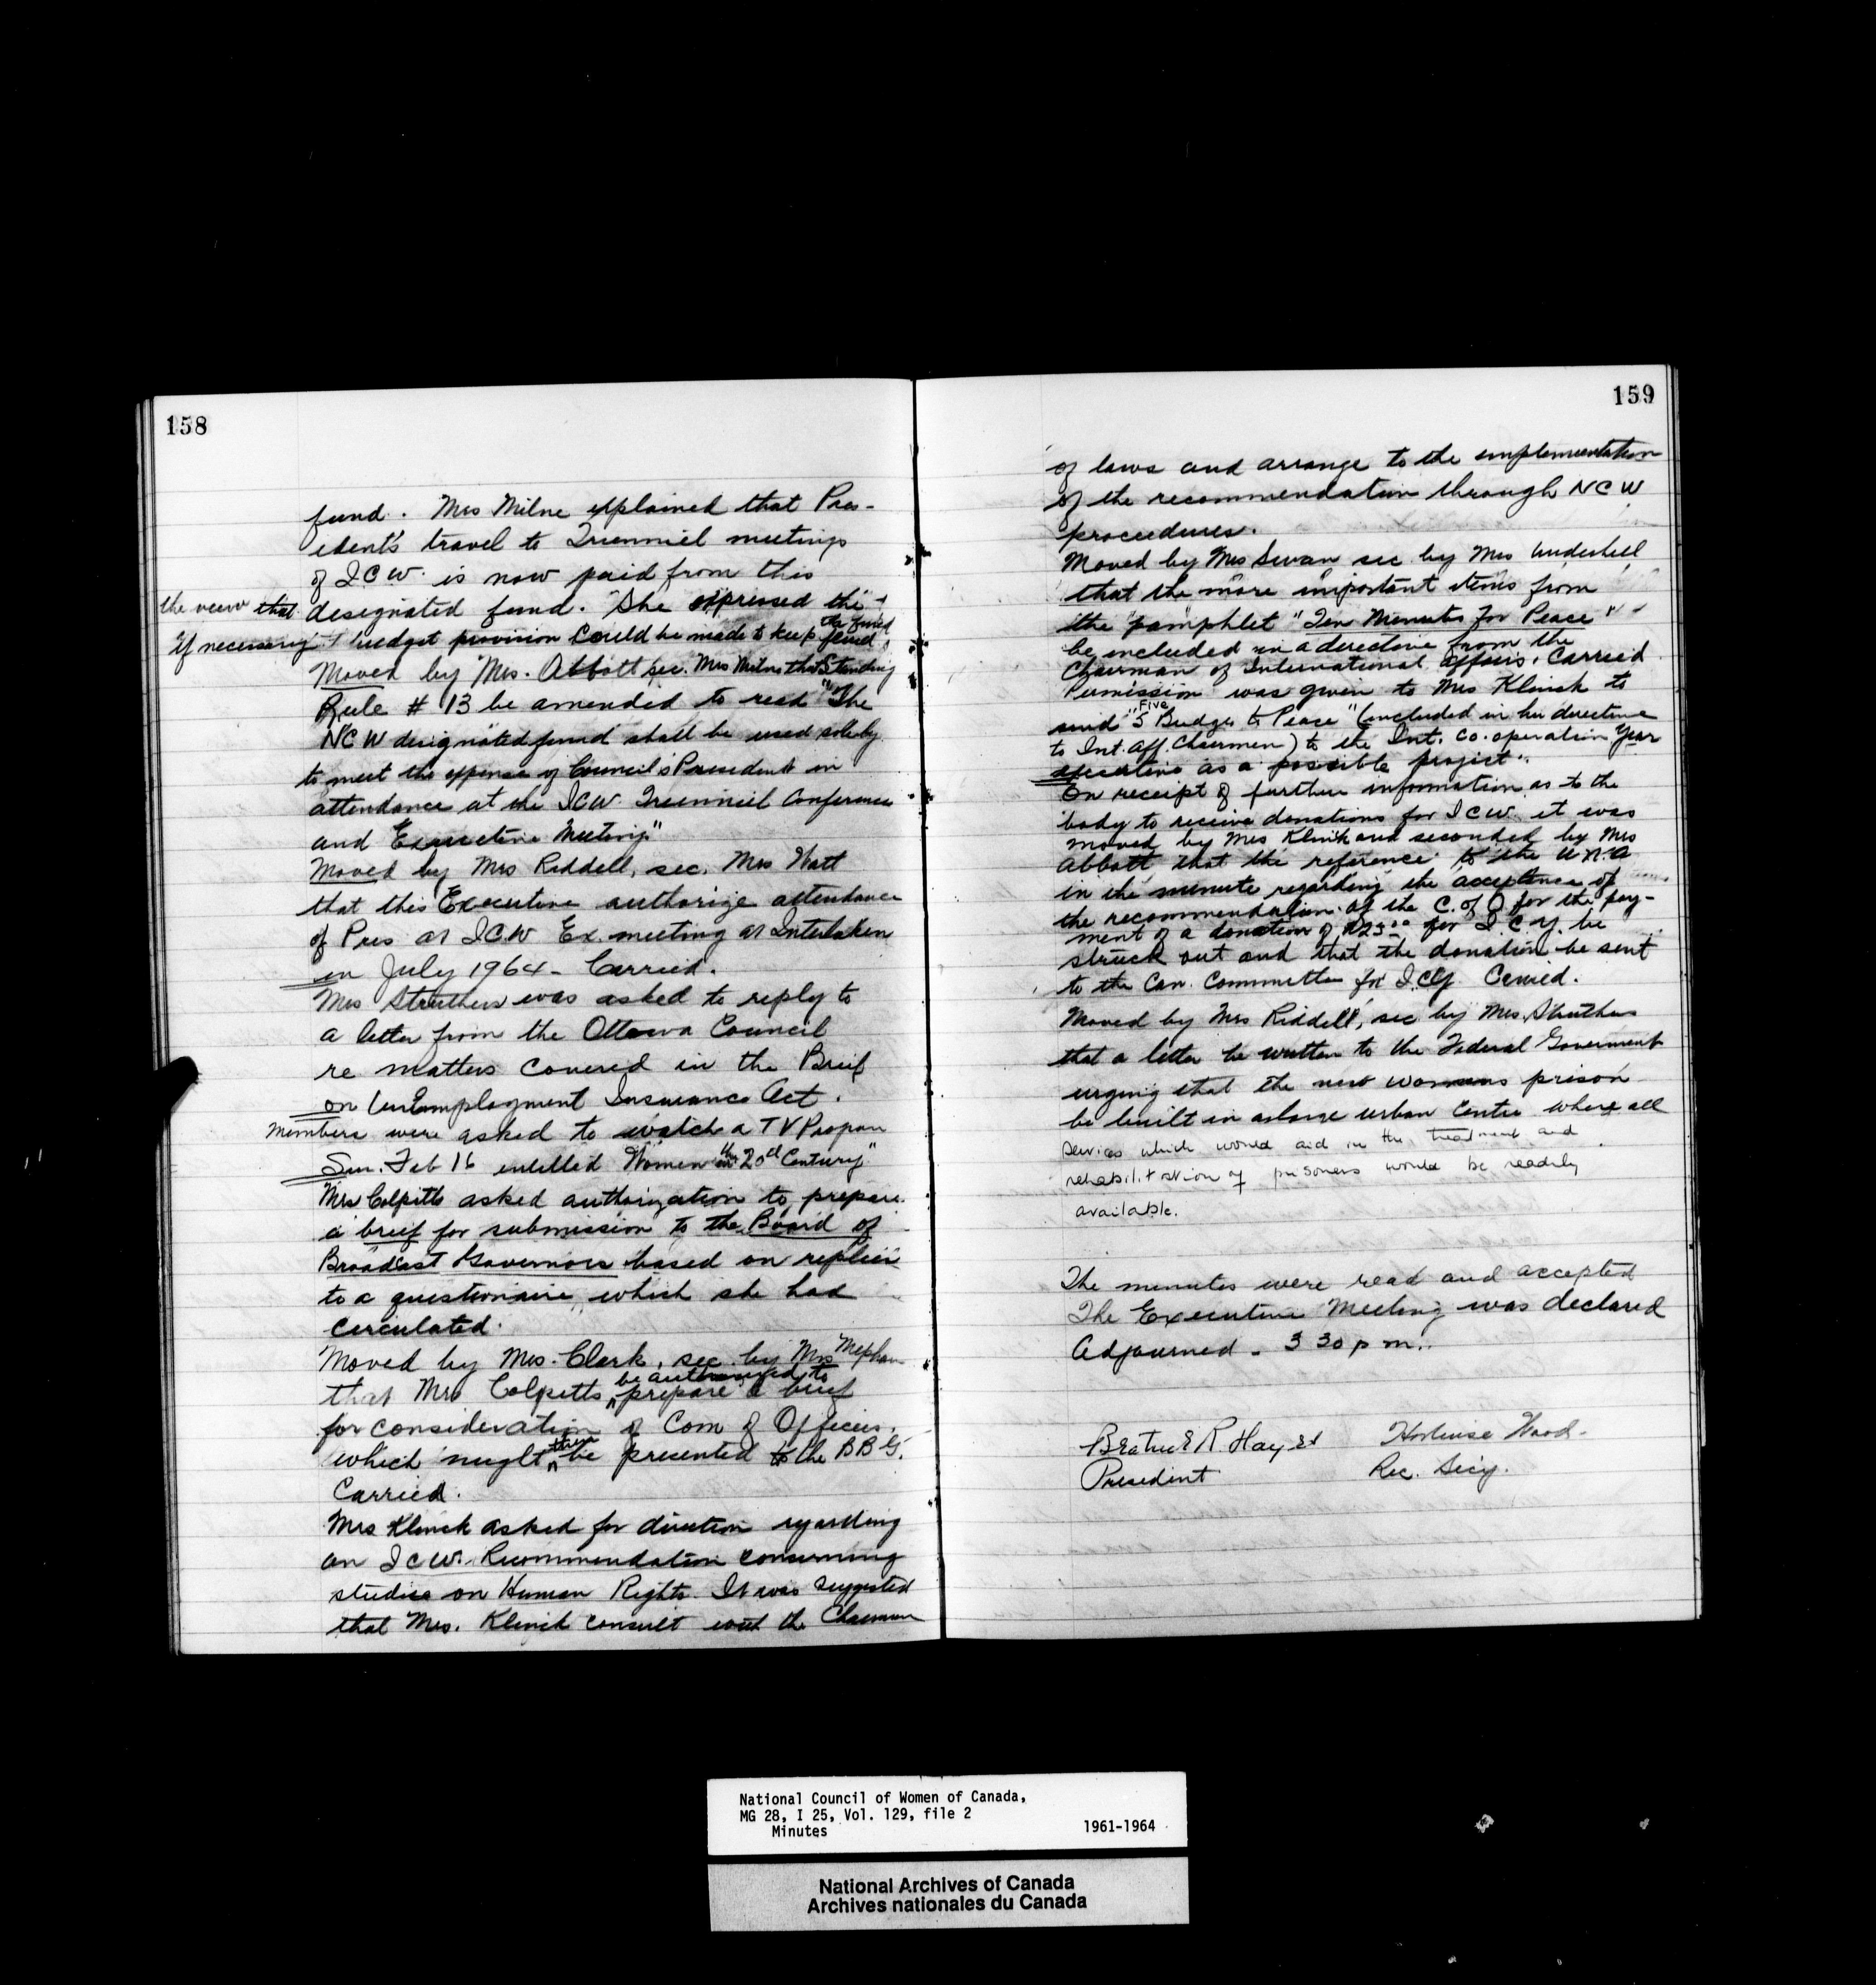 158
fund. Mrs Milne explained that Pres-
ident's travel to Trienniel meetings
of ICW. is now paid from this
the view that designated fund. She expressed the
If necessary budget provision could be made to keep the fund
Moved by Mrs. Abbott sec. Mrs Milne that Standing
Rule # 13 be amended to read "The
NCW designated fund shall be used solely
to meet the expense of Council's President in
attendance at the ICW. Triennial Conference
and Executive Meeting."
Moved by Mrs Riddell, sec. Mrs Watt
that this Executive authorize attendance
of Pres at ICW Ex. meeting at Interlaken
in July 1964 - Carried.
Mrs Struthers was asked to reply to
a letter from the Ottawa Council
re matters covered in the Brief
on UnEmployment Insurance Act.
Members were asked to watch a TV Program
Sun. Feb 16 entitled "Women in the 20th Century"
Mrs Colpitts asked authorization to prepare
a brief for submission to the Board of
Broadcast Governors based on replies
to a questionaire, which she had
circulated.
Moved by Mrs. Clark, sec. by Mrs Mephan
that Mrs Colpitts be authorized to prepare a brief
for consideration of Com of Officers.
which might then be presented to the BBG.
Carried.
Mrs Klinck asked for direction regarding
an ICW. Recommendation concerning
studies on Human Rights. It was suggested
that Mrs. Klinck consult with the Chairman
159
of laws and arrange to the implementation
of the recommendation through NCW
procedures.
Moved by Mrs Swan sec. by Mrs Underhill
that the more important items from
the pamphlet "Ten Minutes for Peace"
be included in a directive from the
Chairman of International Affairs. Carried
Permission was given to Mrs Klinck to
send "5 Five Bridges to Peace" (included in her directive
to Int. Aff. Chairmen) to the Int. Co-operation Year
executive as a possible project".
On receipt of further information as to the
body to receive donations for ICW. it was
moved by Mrs Klinck and seconded by Mrs
Abbott that the reference to the U.N.A
in the minute regarding the acceptance of
the recommendation of the C. of O. for the pay-
ment of a donation of $25.00 for I.C.Y. be
struck out and that the donation be sent
to the Can. Committee for ICY. Carried.
Moved by Mrs Riddell, sec by Mrs. Struthers
that a letter be written to the Federal Goverment
urging that the new womens prison
be built in a large urban centre where all
services which would aid in the treatment and
rehabilitation of prisoners would be readily
available.
The minutes were read and accepted
The Executive Meeting was declared
Adjourned - 3 30 p m..
Beatrice R. Hayes
President
Hortense Wood.
Rec. Secy.
National Council of Women of Canada,
MG 28, I 25, Vol. 129, file 2
Minutes 1961-1964
National Archives of Canada
Archives nationales du Canada